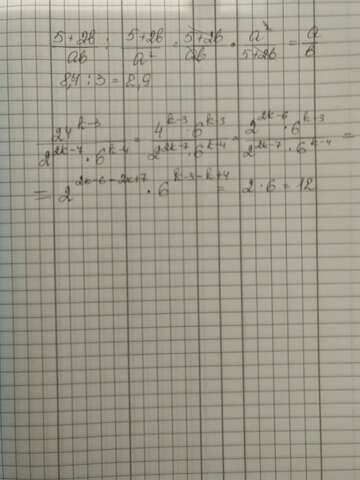 5+2b/ab : 5+2b/a² = 5+2b/ab · a²/5+2b = a/b
8,7 : 3 = 2,9
24^(k-3)/2^(2k-7)·6^(k-4) = 4^(k-3)·6^(k-3)/2^(2k-7)·6^(k-4) = 2^(2k-6)·6^(k-3)/2^(2k-7)·6^(k-4) =
= 2^(2k-6-2k+7) · 6^(k-3-k+4) = 2·6 = 12